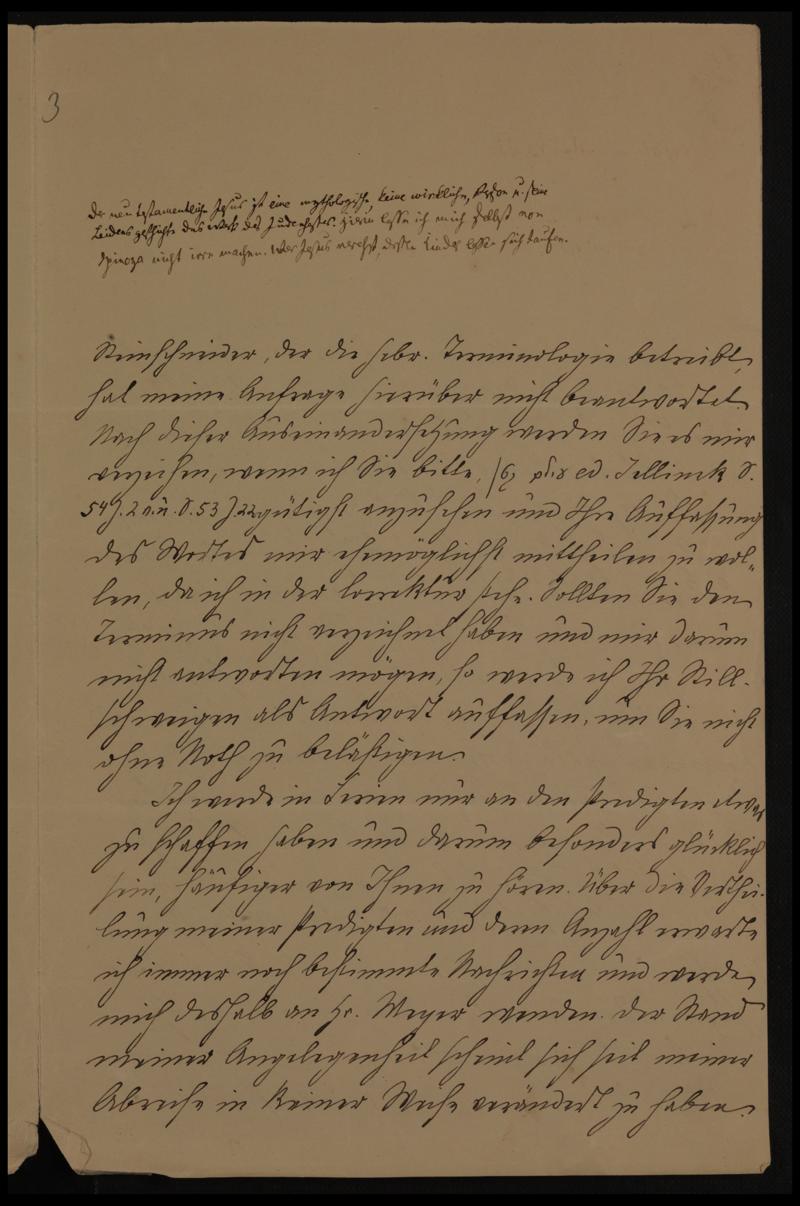 3
Der neutestamentliche Jesus ist eine mythologische, keine wirkliche, Person u. seine
Leidensgeschichte das Werk des Judenhasses. Hierin lasse ich mich selbst von
Spinoza nicht irre machen. Wer Jesus verehrt, dessen Kinder lassen sich taufen.
Steinschneider, der die hebr. Terminologie betreibt,
hat meine Anfrage hierüber nicht beantwortet.
Nach dieser Auseinandersetzung werden Sie es mir
verzeihen, wenn ich Sie bitte, ed. Jellinek S.
54 Z. 2 v. u. S. 53 Z. 22 gütigst anzusehen und Ihre Auffassung
des Wortes mir ehemöglichst mittheilen zu wol-
len, da ich in der Correktur stehe. Sollten Sie den
Terminus nicht verzeichnet haben und mir darum
nicht antworten mögen, so werde ich Ihr Still-
schweigen als Antwort auffassen, um Sie nicht
ohne Noth zu belästigen.
Ich werde in Ferien nur an den Predigten etwas
zu schaffen haben und darum besonders glücklich
sein, häufiger von Ihnen zu hören. Über die Verthei-
lung meiner Predigten und deren Anzahl erwarte
ich immer noch bestimmte Nachrichten und werde
mich deshalb an Hr. Meyer wenden. Der Stand
meiner Angelegenheit scheint sich seit meiner
Abreise in keiner Weise verändert zu haben.